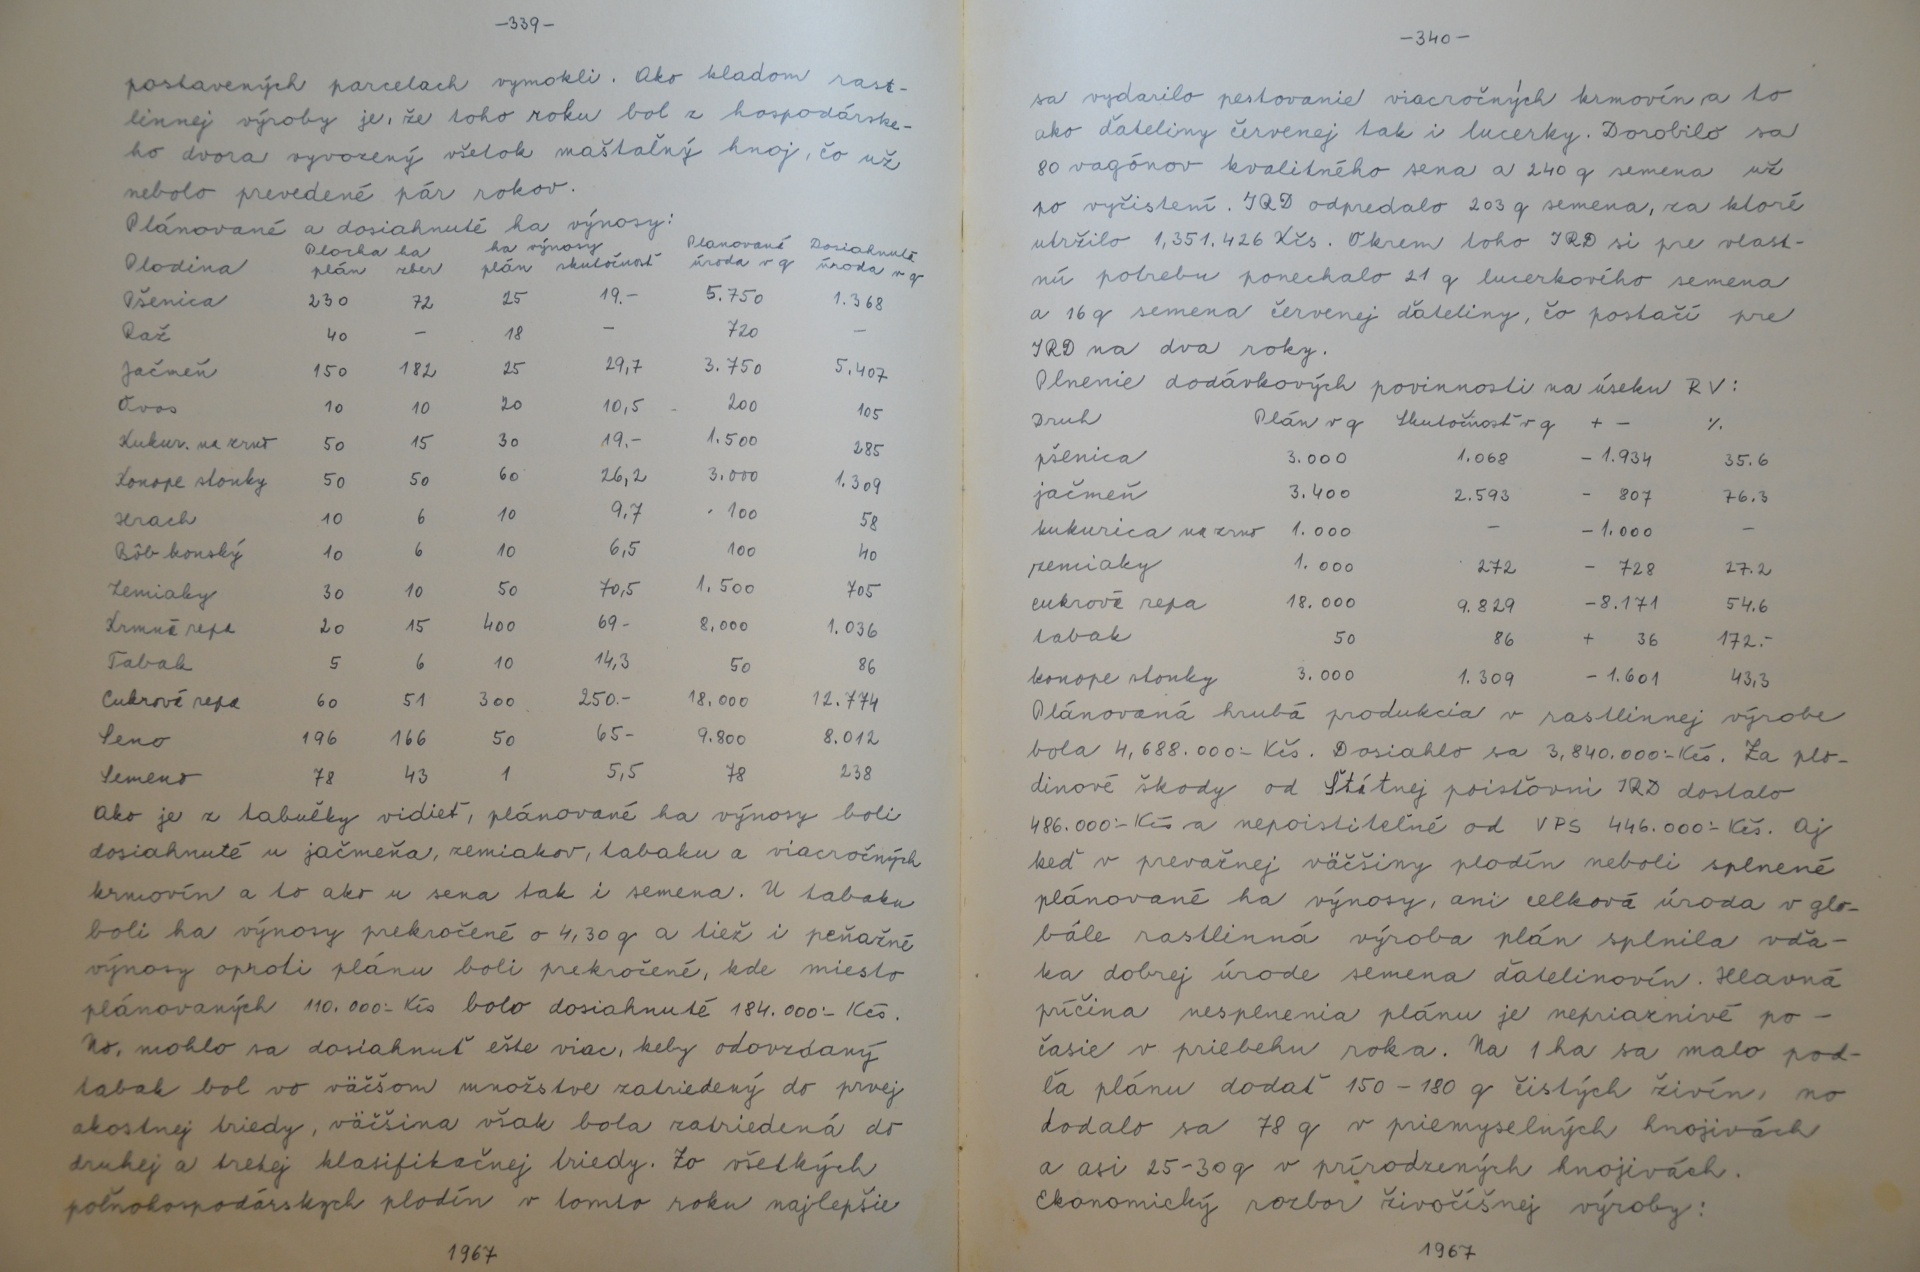 -339-
postavených parcelach vymokli. Ako kladom rast-
linnej výroby je, že toho roku bol z hospodárske-
ho dvora vyvozený všetok maštalný hnoj, čo už
nebolo prevedené pár rokov.
Plánované a dosiahnuté ha výnosy:
Plodina Plocha ha plán zber ha výnosy plán skutočnosť Planované úroda v q Dosiahnuté úroda v q
Pšenica 230 72 25 19.- 5.750 1.368
Raž 40 - 18 - 720 -
Jačmeň 150 182 25 29,7 3.750 5.407
Ovos 10 10 20 10,5 200 105
Kukur. na zrno 50 15 30 19.- 1.500 285
Konope stonky 50 50 60 26,2 3.000 1.309
Hrach 10 6 10 9,7 100 58
Bôb konský 10 6 10 6,5 100 40
Zemiaky 30 10 50 70,5 1.500 705
Krmné repa 20 15 400 69- 8,000 1.036
Tabak 5 6 10 14,3 50 86
Cukrová repa 60 51 300 250.- 18.000 12.774
Seno 196 166 50 65- 9.800 8.012
Semeno 78 43 1 5,5 78 238
Ako je z tabuľky vidieť, plánované ha výnosy boli
dosiahnuté u jačmeňa, zemiakov, tabaku a viacročných
krmovín a to ako u sena tak i semena. U tabaku
boli ha výnosy prekročené o 4,30 q a tiež i peňažné
výnosy oproti plánu boli prekročené, kde miesto
plánovaných 110.000:- Kčs bolo dosiahnuté 184.000:- Kčs.
No, mohlo sa dosiahnuť ešte viac, keby odovzdaný
tabak bol vo väčšom množstve zatriedený do prvej
akostnej triedy, väčšina však bola zatriedená do
druhej a tretej klasifikačnej triedy. Zo všetkých
poľnohospodárskych plodín v tomto roku najlepšie
1967
-340-
sa vydarilo pestovanie viacročných krmovín a to
ako ďateliny červenej tak i lucerky. Dorobilo sa
80 vagónov kvalitného sena a 240 q semena už
po vyčistení. JRD odpredalo 203 q semena, za ktoré
utržilo 1,351.426 Kčs. Okrem toho JRD si pre vlast-
nú potrebu ponechalo 21 q lucerkového semena
a 16 q semena červenej ďateliny, čo postačí pre
JRD na dva roky.
Plnenie dodávkových povinnosti na úseku RV:
Druh Plán v q Skutočnosť v q + - %
pšenica 3.000 1.068 - 1.934 35.6
jačmeň 3.400 2.593 - 807 76.3
kukurica na zrno 1.000 - - 1.000 -
zemiaky 1.000 272 - 728 27.2
cukrová repa 18.000 9.829 - 8.171 54.6
tabak 50 86 + 36 172.-
konope stonky 3.000 1.309 - 1.601 43,3
Plánovaná hrubá produkcia v rastlinnej výrobe
bola 4,688.000:- Kčs. Dosiahlo sa 3,840.000:- Kčs. Za plo-
dinové škody od Štátnej poisťovni JRD dostalo
486.000:- Kčs a nepoistiteľné od VPS 446.000:- Kčs. Aj
keď v prevažnej väčšiny plodín neboli splnené
plánované ha výnosy, ani celková úroda v glo-
bále rastlinná výroba plán splnila vďa-
ka dobrej úrode semena ďatelinovín. Hlavná
príčina nesplnenia plánu je nepriaznivé po-
časie v priebehu roka. Na 1 ha sa malo pod-
ľa plánu dodať 150 - 180 q čistých živín, no
dodalo sa 78 q v priemyselných hnojivách
a asi 25-30 q v prírodzených hnojivách.
Ekonomický rozbor živočíšnej výroby:
1967